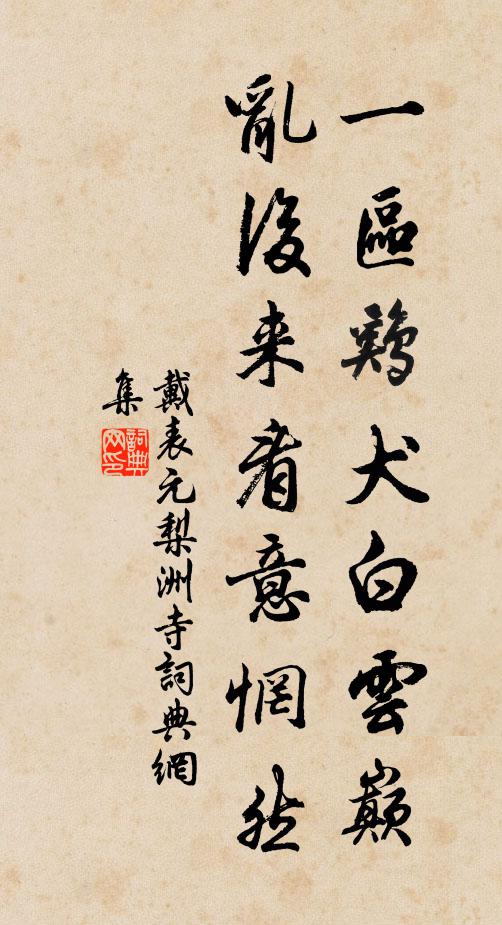 一區鷄犬白雲巔
亂後来看意惘然
戴表元梨洲寺詞典網
集
詞典網印